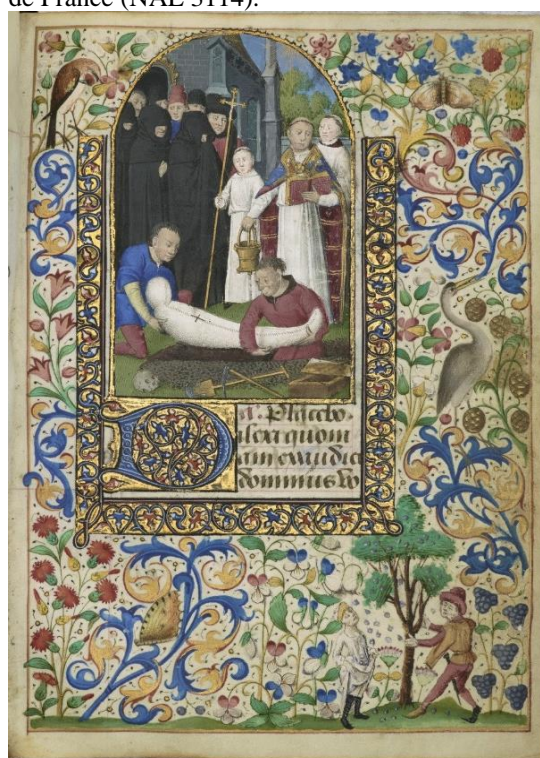 de France (NAL 3114).
a. Placebo
Dilexi quoni
am exaudiet
dominus vo